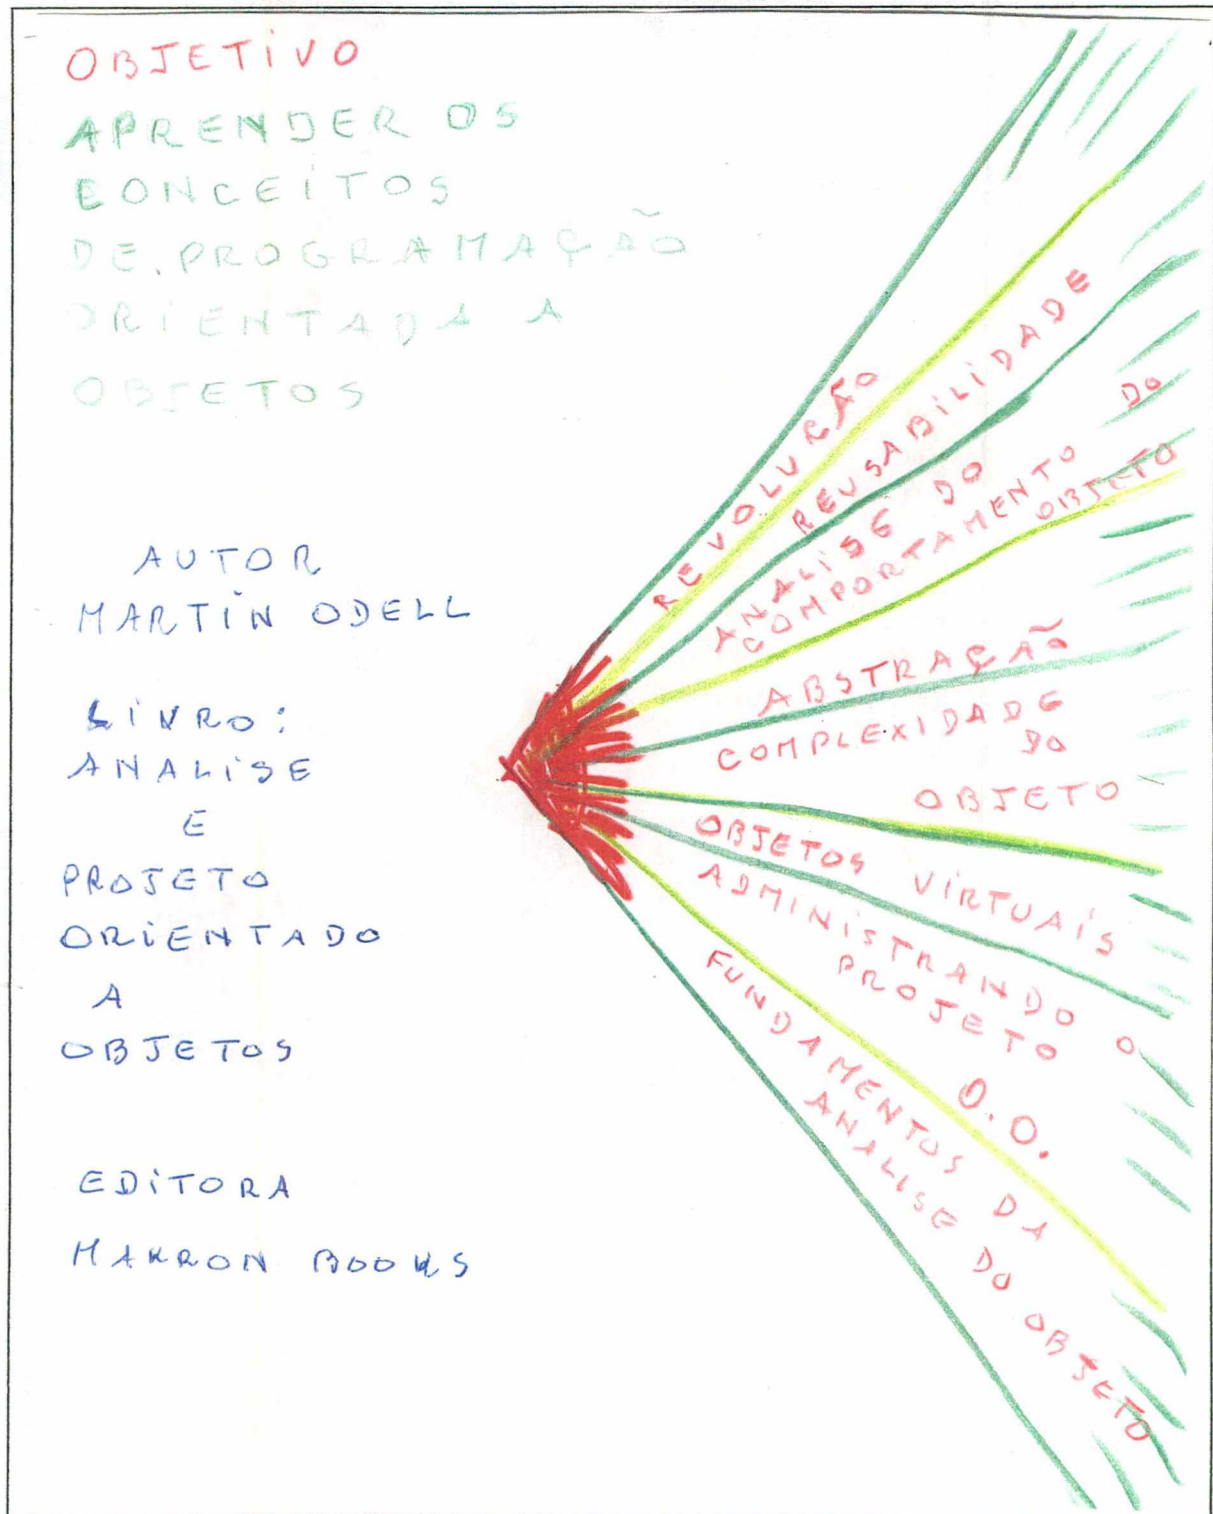 OBJETIVO
APRENDER OS
CONCEITOS
DE PROGRAMAÇÃO
ORIENTADA A
OBJETOS
AUTOR
MARTIN ODELL
LIVRO:
ANALISE
E
PROJETO
ORIENTADO
A
OBJETOS
EDITORA
MAKRON BOOKS
REVOLUÇÃO
REUSABILIDADE
ANALISE DO
COMPORTAMENTO DO
OBJETO
ABSTRAÇÃO
COMPLEXIDADE
DO
OBJETO
OBJETOS VIRTUAIS
ADMINISTRANDO O
PROJETO
O.O.
FUNDAMENTOS DA
ANALISE DO OBJETO